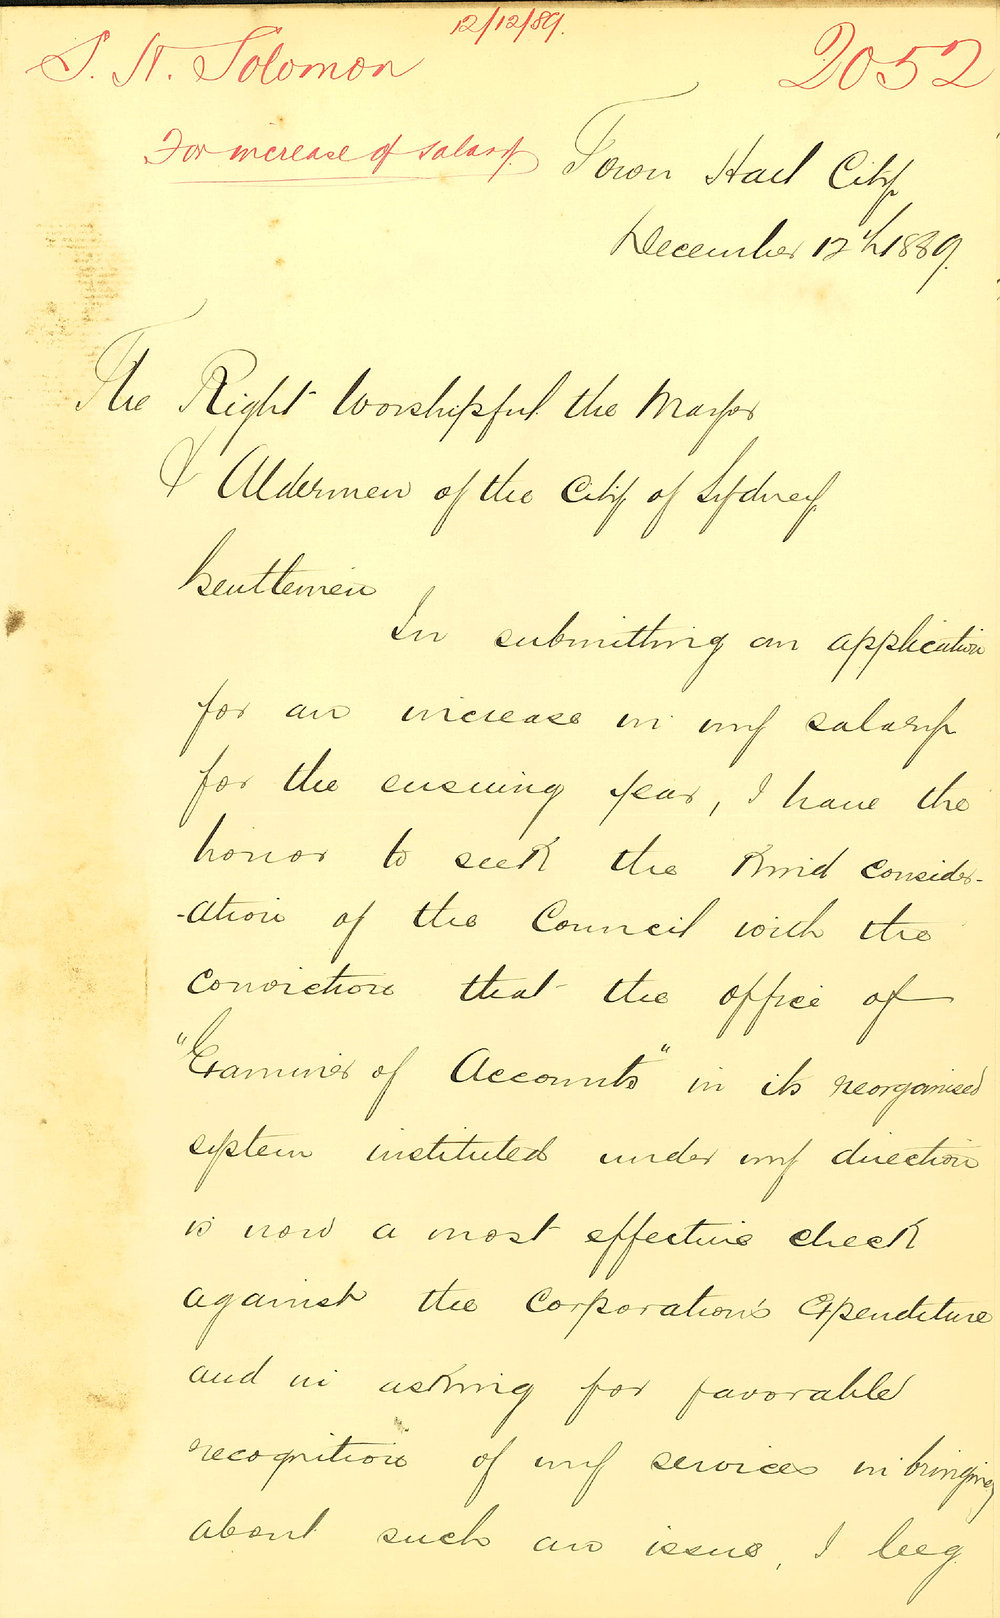 12/12/89.
S. H. Solomon
2052
For increase of salary.
Town Hall City
December 12th 1889.
The Right Worshipful the Mayor
& Aldermen of the City of Sydney
Gentlemen
In submitting an application
for an increase in my salary
for the ensuing year, I have the
honor to seek the kind consider-
-ation of the Council with the
conviction that the office of
"Examiner of Accounts" in its reorganised
system instituted under my direction
is now a most effective check
against the Corporation's Expenditure
and in asking for favorable
recognition of my services in bringing
about such an issue, I beg